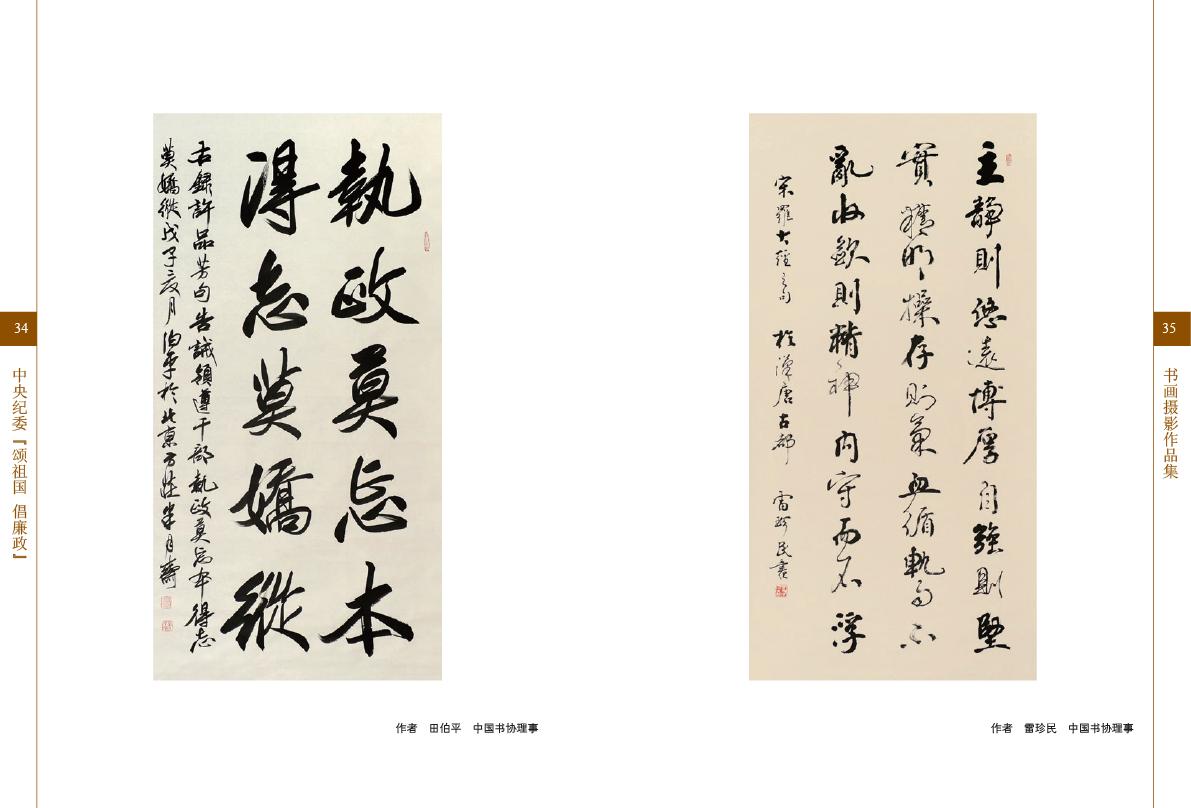 34
中央纪委『颂祖国 倡廉政』
執政莫忘本
得志莫嬌縱
右録許品芳句告誡領導干部執政莫忘本得志
莫嬌縱戊子夏月伯平於北京方莊半月齋
作者 田伯平 中国书协理事
主靜則悠遠博厚自強則堅
實精明操存則氣血循軌而不
亂收斂則精神内守而不浮
宋羅大經之句 於漢唐古都 雷珍民書
作者 雷珍民 中国书协理事
35
书画摄影作品集